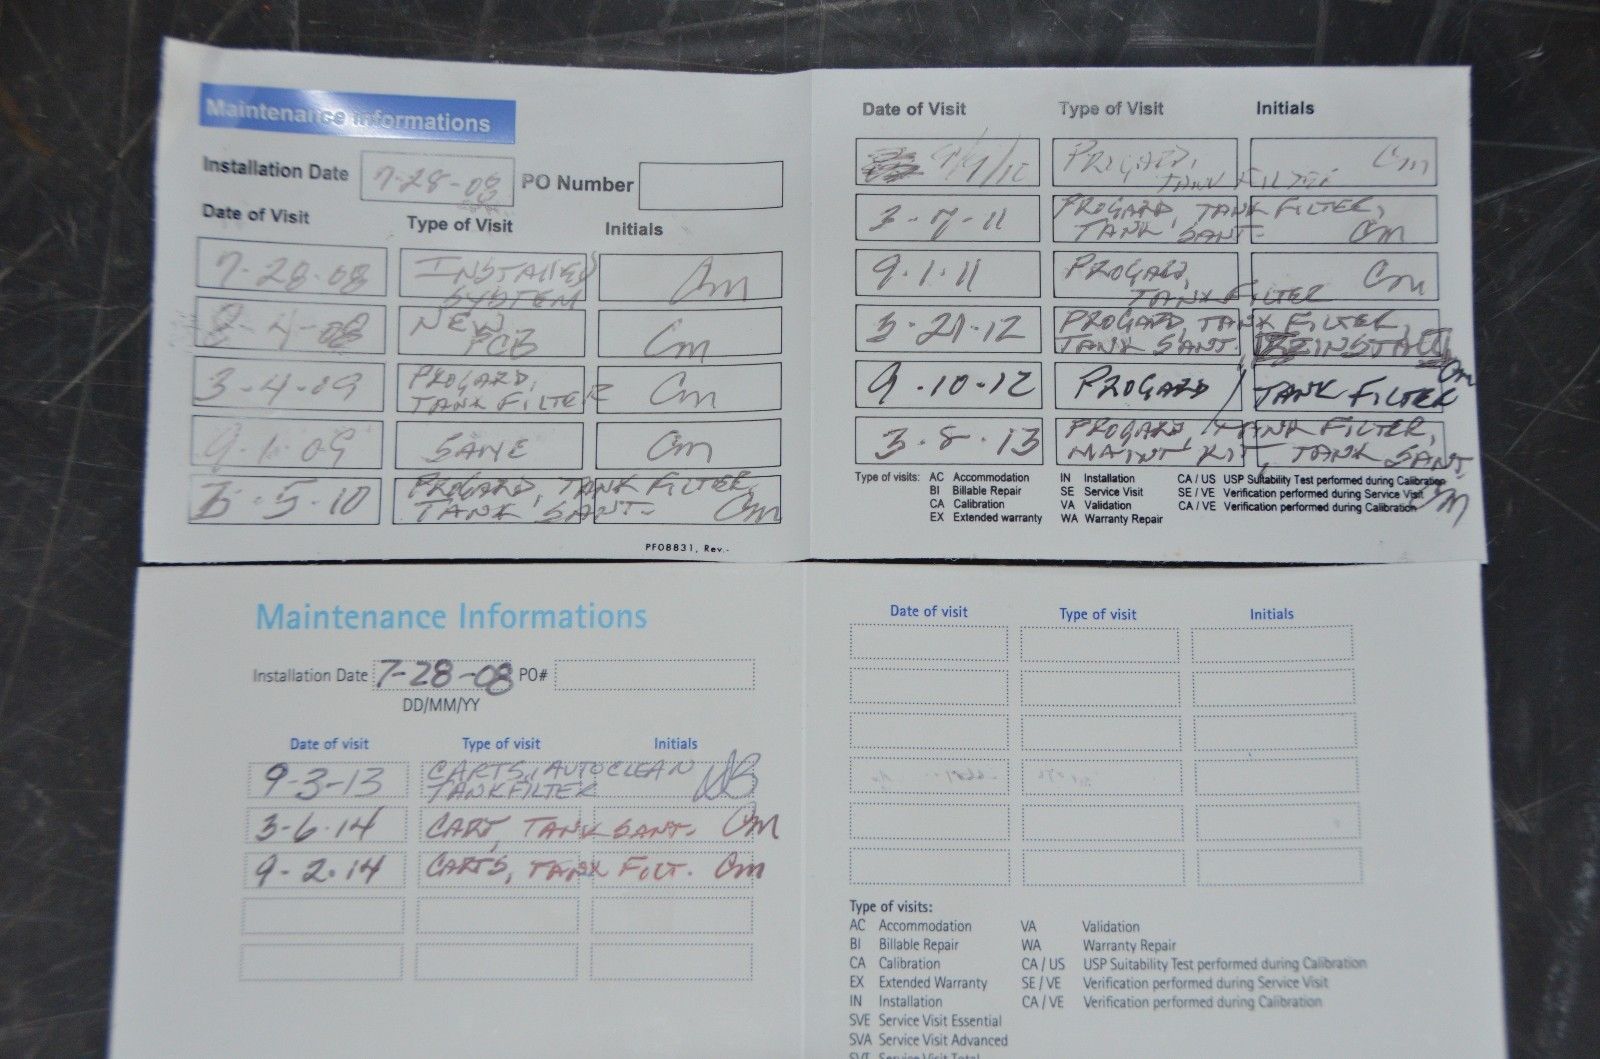 Maintenance Informations
Installation Date 7-28-08 PO Number
Date of Visit Type of Visit Initials
7-28-08 INSTALLED SYSTEM Cm
8-4-08 NEW PCB Cm
3-4-09 PROGARD, TANK FILTER Cm
9-1-09 SAME Cm
3-5-10 PROGARD, TANK FILTER, TANK SANT- Cm
PF08831, Rev.-
Date of Visit Type of Visit Initials
PROGARD, TANK FILTER Cm
3-7-11 PROGARD, TANK FILTER, TANK SANT- Cm
9-1-11 PROGARD, TANK FILTER Cm
3-21-12 PROGARD, TANK FILTER, TANK SANT. Cm
9-10-12 PROGARD / TANK FILTER
3-8-13 PROGARD, TANK FILTER, MAINT KIT, TANK SANT. Cm
Type of visits: AC Accommodation IN Installation CA / US USP Suitability Test performed during Calibration
BI Billable Repair SE Service Visit SE / VE Verification performed during Service Visit
CA Calibration VA Validation CA / VE Verification performed during Calibration
EX Extended warranty WA Warranty Repair
Maintenance Informations
Installation Date 7-28-08 PO#
DD/MM/YY
Date of visit Type of visit Initials
9-3-13 CARTS, AUTOCLEAN TANKFILTER
3-6-14 CART, TANK SANT- Cm
9-2-14 CARTS, TANK FILT. Cm
Date of visit Type of visit Initials
Type of visits:
AC Accommodation VA Validation
BI Billable Repair WA Warranty Repair
CA Calibration CA / US USP Suitability Test performed during Calibration
EX Extended Warranty SE / VE Verification performed during Service Visit
IN Installation CA / VE Verification performed during Calibration
SVE Service Visit Essential
SVA Service Visit Advanced
SVT Service Visit Total